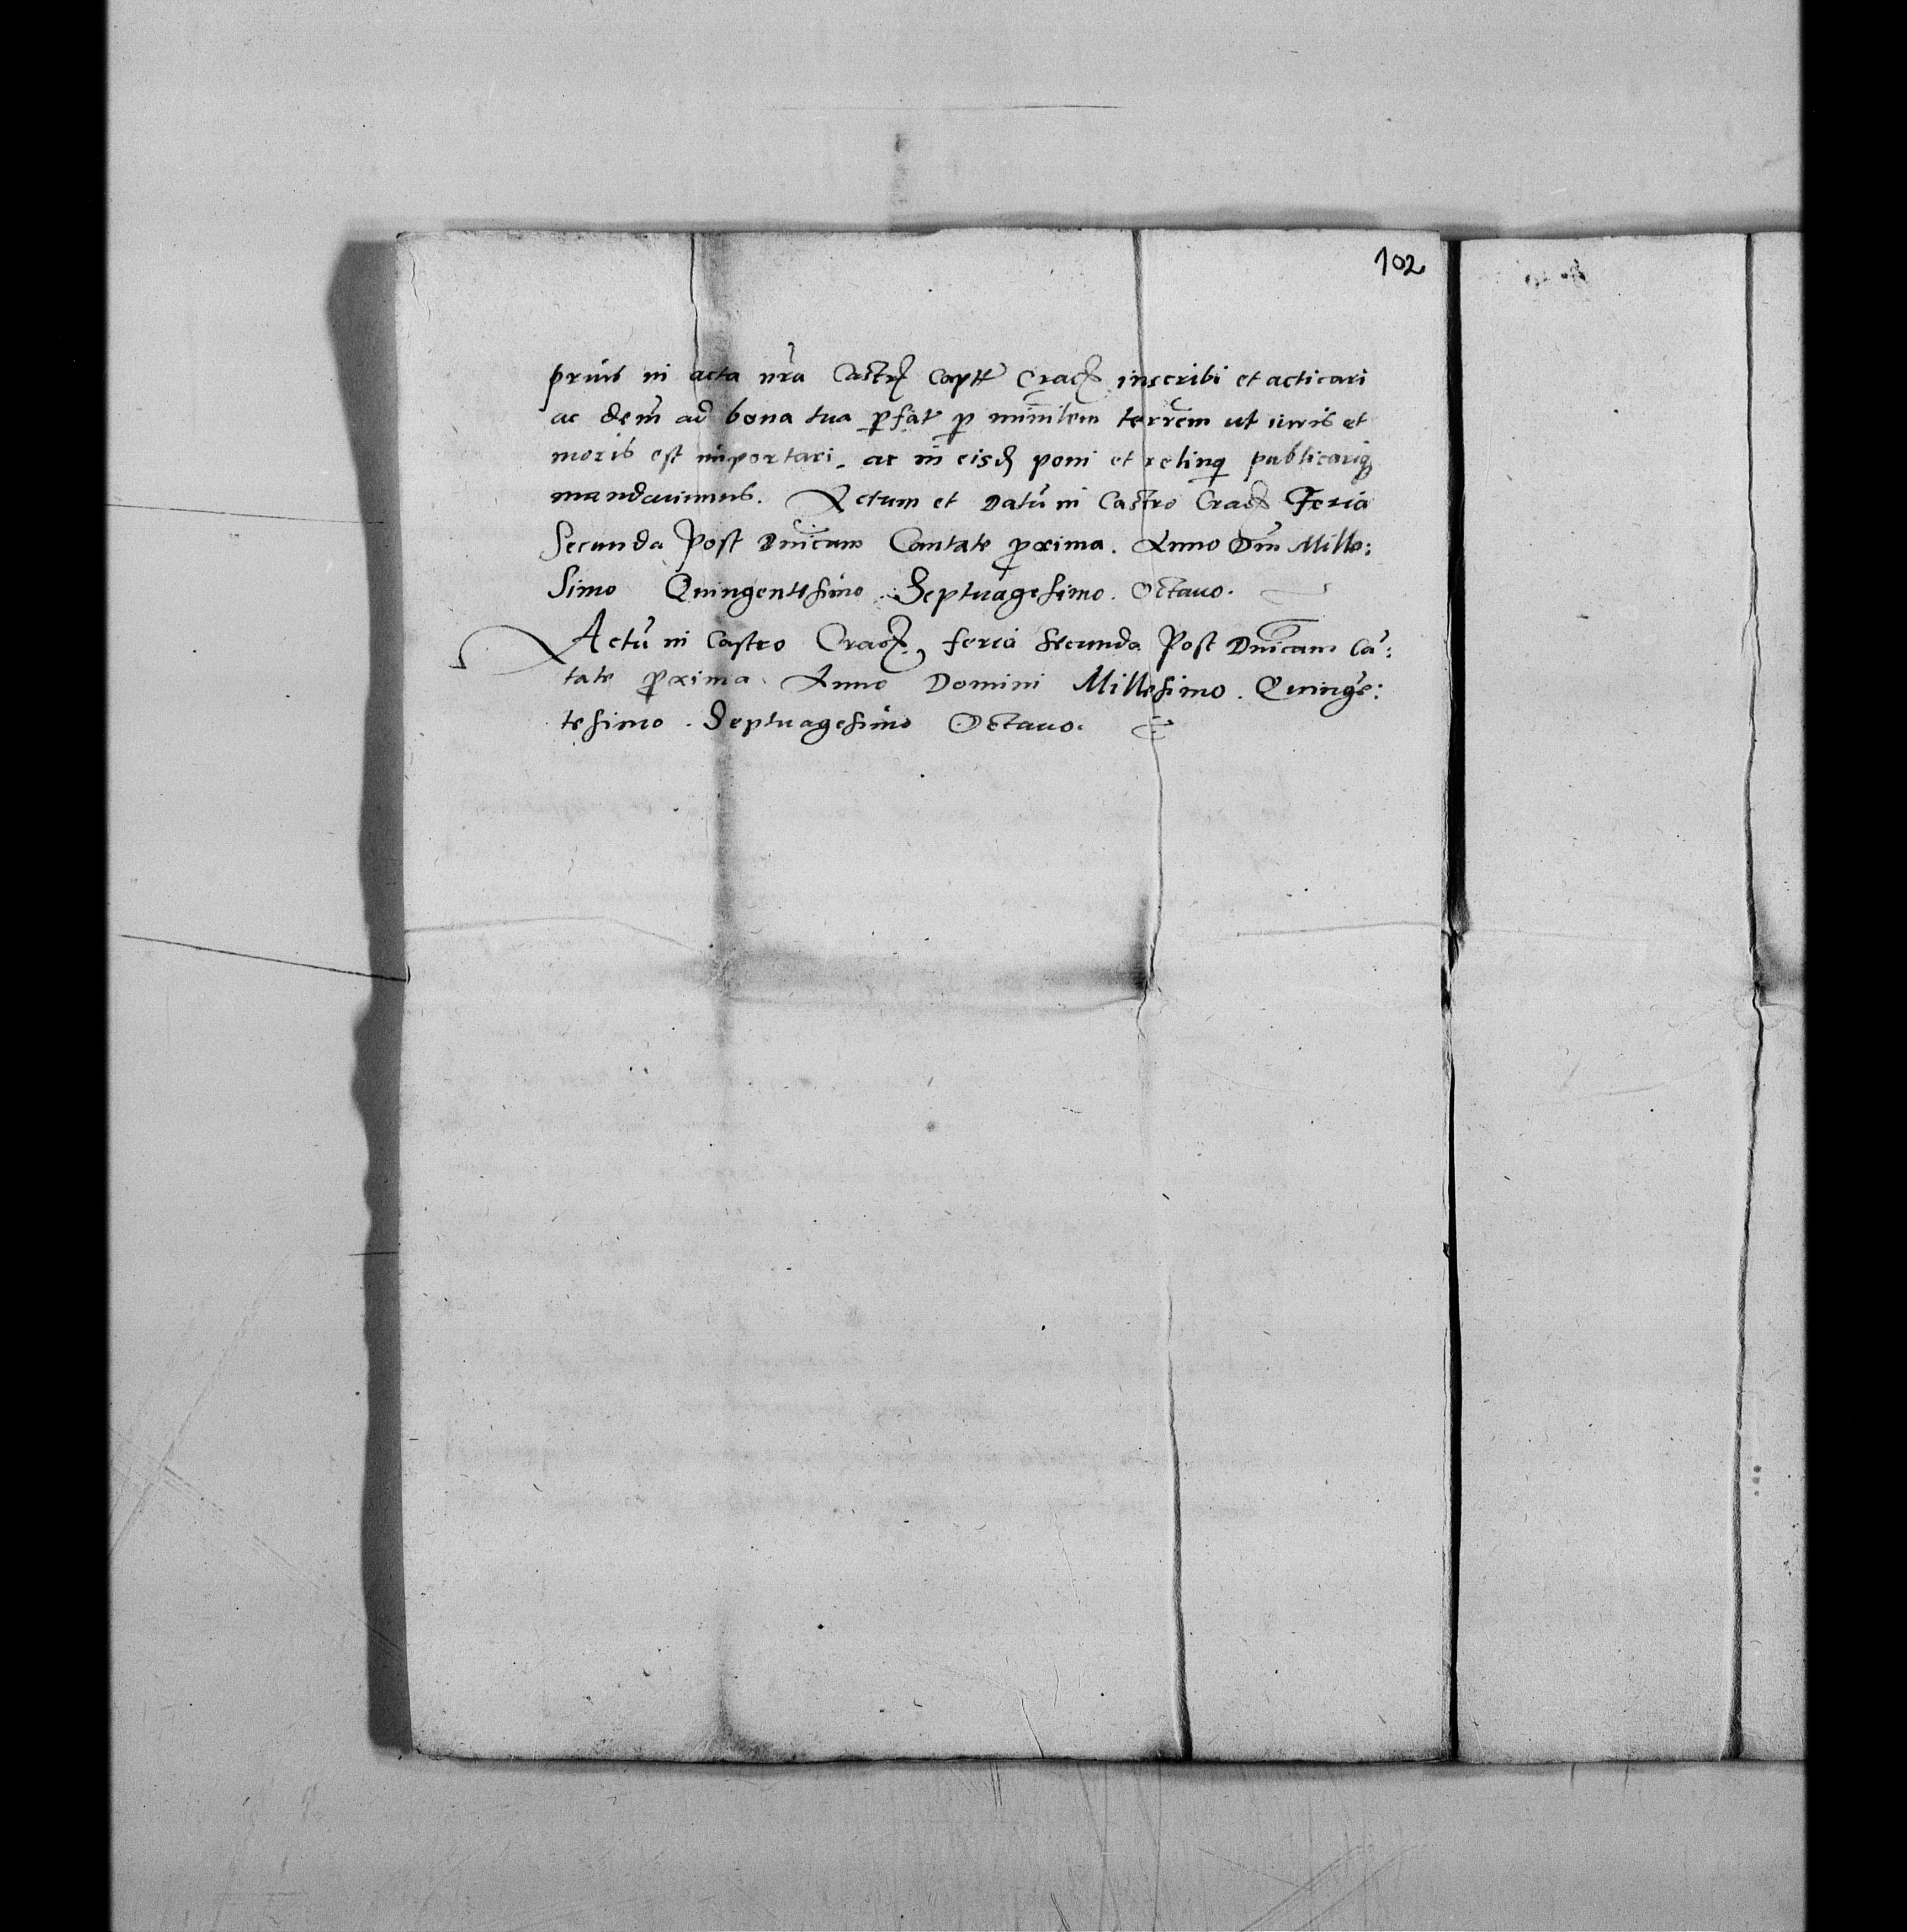 102
prius in acta nrã Castr Captt Crac inscribi et acticari
ac dem̃ ad bona tua p̱fat p̱ minilem̃ terrem̃ ut iuris et
moris est importari. ac in eisd poni et relinq publicariq
mandauimus. Actum et Datũ in Castro Crac Feria
Secunda Post Dnĩcam Cantate p̱xima. Anno Dñi Mille:
simo Quingentesimo Septuagesimo. Octauo.
Actũ in Castro Crac, feria Secunda Post Dnĩcam Cã:
tate p̱xima. Anno Domini Millesimo. Quingẽ:
tesimo. Septuagesimo Octauo.